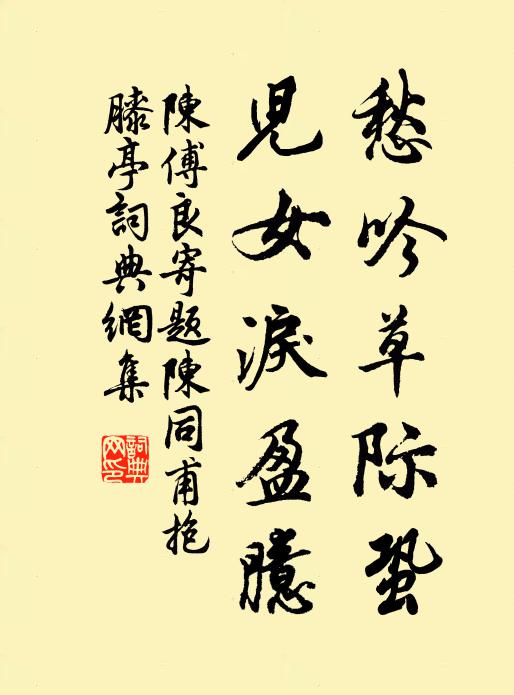 愁吟草际蛩
兒女淚盈臆
陳傅良寄題陳同甫抱
膝亭詞典網集
詞典
网印